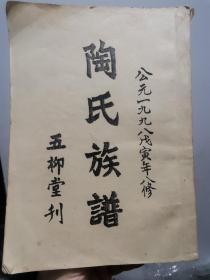 公元一九九八戊寅年八修
陶氏族譜
五柳堂刊